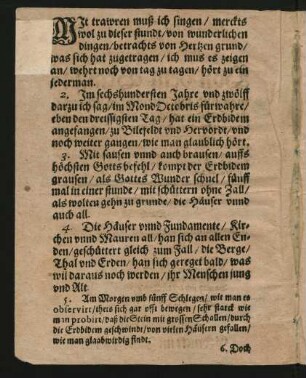 MIt trawren muß ich singen / merckts
wol zu dieser stundt / von wunderlichen
dingen / betrachts von Hertzen grund /
was sich hat zugetragen / ich mus es zeigen
an / wehrt noch von tag zu tagen / hört zu ein
jederman.
2. Im sechshundersten Jahre vnd zwölff
darzu ich sag / im Mond Octobris fürwahre /
eben den dreissigsten Tag / hat ein Erdbidem
angefangen / zu Bilefeldt vnd Hervordt / vnd
noch weiter gangen / wie man glaublich hört.
3. Mit sausen vnnd auch brausen / auffs
höchsten Gotts befehl / kompt der Erdbidem
grausen / als Gottes Wunder schnel / fünff
mal in einer stunde / mit schüttern ohne Zall /
als wolten gehn zu grunde / die Häuser vnnd
auch all.
4. Die Häuser vnnd Fundamente / Kir-
chen vnnd Mauren all / han sich an allen En-
den / geschüttert gleich zum Fall / die Berge /
Thal vnd Erden / han sich gereget bald / was
wil daraus noch werden / ihr Menschen jung
vnd Alt
5. Am Morgen vmb fünff Schlegen / wit man es
observirt / theis sich gar offt bewegen / sehr starck wie
man probirt / daß die Stein mit grossen Schallen / durch
die Erdbidem geschwinde / von vielen Häusern gefallen /
wie man glaabwirdig findt.
6. Doch